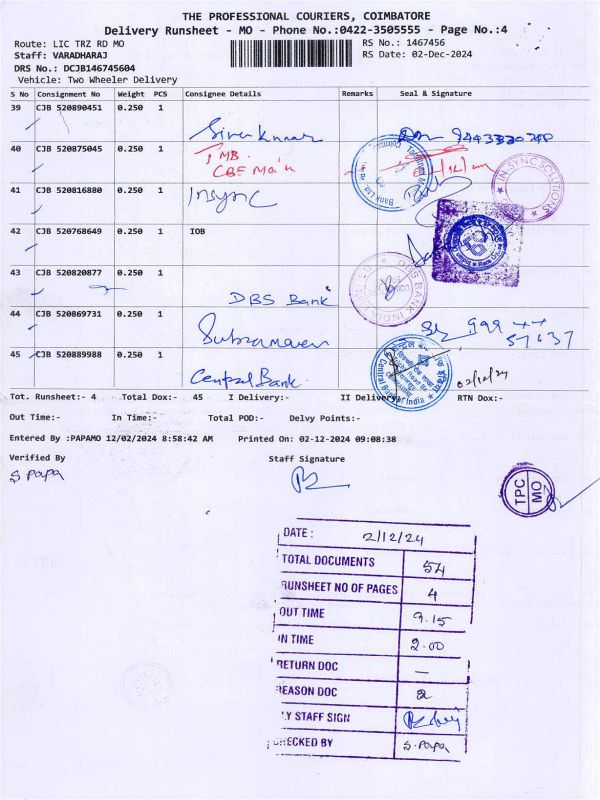 THE PROFESSIONAL COURIERS, COIMBATORE
Delivery Runsheet - MO - Phone No.:0422-3505555 - Page No.:4
Route: LIC TRZ RD MO
RS No.: 1467456
Staff: VARADHARAJ
RS Date: 02-Dec-2024
DRS No.: DCJB146745604
Vehicle: Two Wheeler Delivery
S No Consignment No Weight PCS Consignee Details Remarks Seal & Signature
39 CJB 520890451 0.250 1
Sivakumar
40 CJB 520875045 0.250 1
TMB
CBE Main
41 CJB 520816880 0.250 1
Insync
IN-SYNC SOLUTIONS
42 CJB 520768649 0.250 1 IOB
43 CJB 520820877 0.250 1
DBS Bank
DBS BANK INDIA
44 CJB 520869731 0.250 1
45 CJB 520889988 0.250 1
Central Bank
Central Bank of India
02/12/24
Tot. Runsheet:- 4 Total Dox:- 45 I Delivery:- II Delivery:- RTN Dox:-
Out Time:- In Time:- Total POD:- Delvy Points:-
Entered By :PAPAMO 12/02/2024 8:58:42 AM Printed On: 02-12-2024 09:08:38
Verified By Staff Signature
S. Papa
TPC
MO
DATE : 2/12/24
TOTAL DOCUMENTS 54
RUNSHEET NO OF PAGES 4
OUT TIME 9.15
IN TIME 2.00
RETURN DOC —
REASON DOC 2
LY STAFF SIGN
CHECKED BY S. Papa